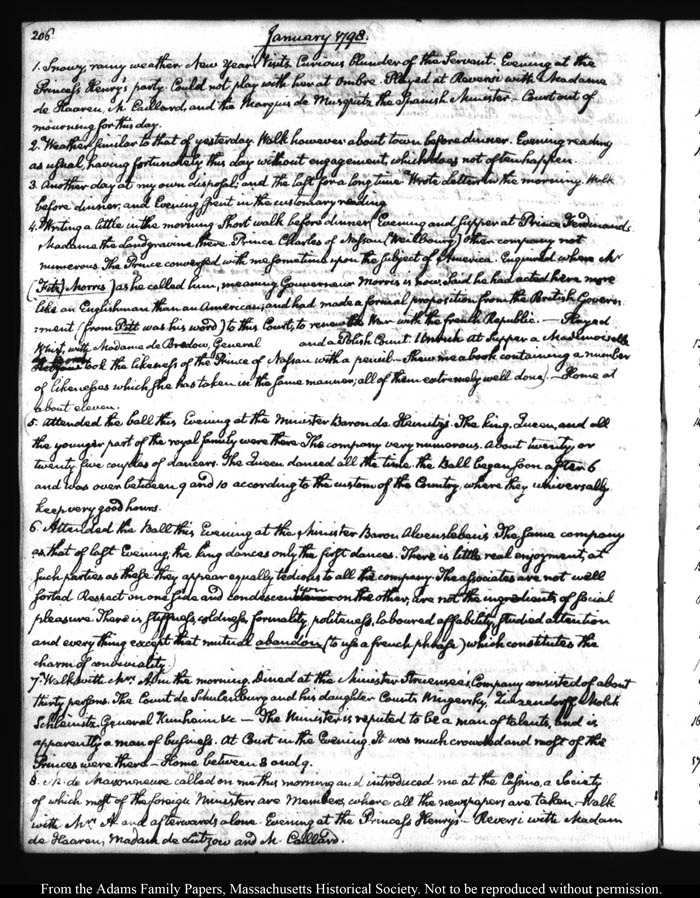 206
January 1798.
1. Snowy, rainy weather. New Year's Visits. Curious blunder of the Servant. Evening at the
Princess Henry's party. Could not play with her at Ombre. Played at Reversi with Madame
de Haaren, M. Caillard, and the Marquis de Musquitz the Spanish Minister — Court out of
mourning for this day.
2. Weather similar to that of yesterday. Walk however about town before dinner. Evening reading
as usual, having fortunately this day without engagement, which does not often happen.
3. Another day at my own disposal; and the last for a long time. Wrote letters in the morning. Walk
before dinner, and Evening spent in the customary reading.
4. Writing a little in the morning. Short walk before dinner. Evening and supper at Prince Ferdinand's.
Madame the Landgravine there. Prince Charles of Nassau (Weilbourg) other company not
numerous. The Prince conversed with me sometime upon the subject of America. Enquired where Mr
(Fitz) Morris) as he called him, meaning Gouverneur Morris is now; said he had acted here more
like an Englishman than an American, and had made a formal proposition from the British Govern:
:ment (from Pitt was his word) to this Court, to renew the War with the french Republic. — Played
Whist, with Madame de Bredow, General and a Polish Count. at supper a Mademoiselle
took the likeness of the Prince of Nassau with a pencil — Shew me a book containing a number
of likenesses which she has taken in the same manner; all of them extremely well done). — Home at
about eleven.
5. Attended the ball this Evening at the Minister Baron de Heinitz's. The king, Queen, and all
the younger part of the royal family were there. The company very numerous. About twenty, or
twenty five couples of dancers. The Queen danced all the time. the Ball began soon after 6
and was over between 9 and 10 according to the custom of the Country, where they universally
keep very good hours.
6. Attended the Ball this Evening at the Minister Baron Alvensleben's. The same company
as that of last Evening, the king dances only the first dances. There is little real enjoyment, at
such parties as these they appear equally tedious to all the company. The associates are not well
sorted. Respect on one side and condescension on the other, are not the ingredients of social
pleasure. There is stiffness, coldness, formality, politeness, laboured affability, studied attention
and everything except that mutual abandon (to use a french phrase) which constitutes the
charm of conviviality.
7. Walk with Mrs. A. in the morning. Dined at the Minister Struensee's, Company consisted of about
thirty persons. The Count de Schulenburg and his daughter Counts Wingersky, Zinzendorff
Schleinitz General Kunheim &c — The Minister is reputed to be a man of talents, and is
apparently a man of business. At Court in the Evening. It was much crowded and most of the
Princes were there — Home between 8 and 9.
8. M. de Maisonneuve called on me this morning and introduced me at the Casino, a society
of which most of the foreign Ministers are Members, where all the newspapers are taken — Walk
with Mrs. A. and afterwards alone. Evening at the Princess Henry's — Reversi with Madam
de Haaren, Madam de Lutzow and M. Caillard.
From the Adams Family Papers, Massachusetts Historical Society. Not to be reproduced without permission.